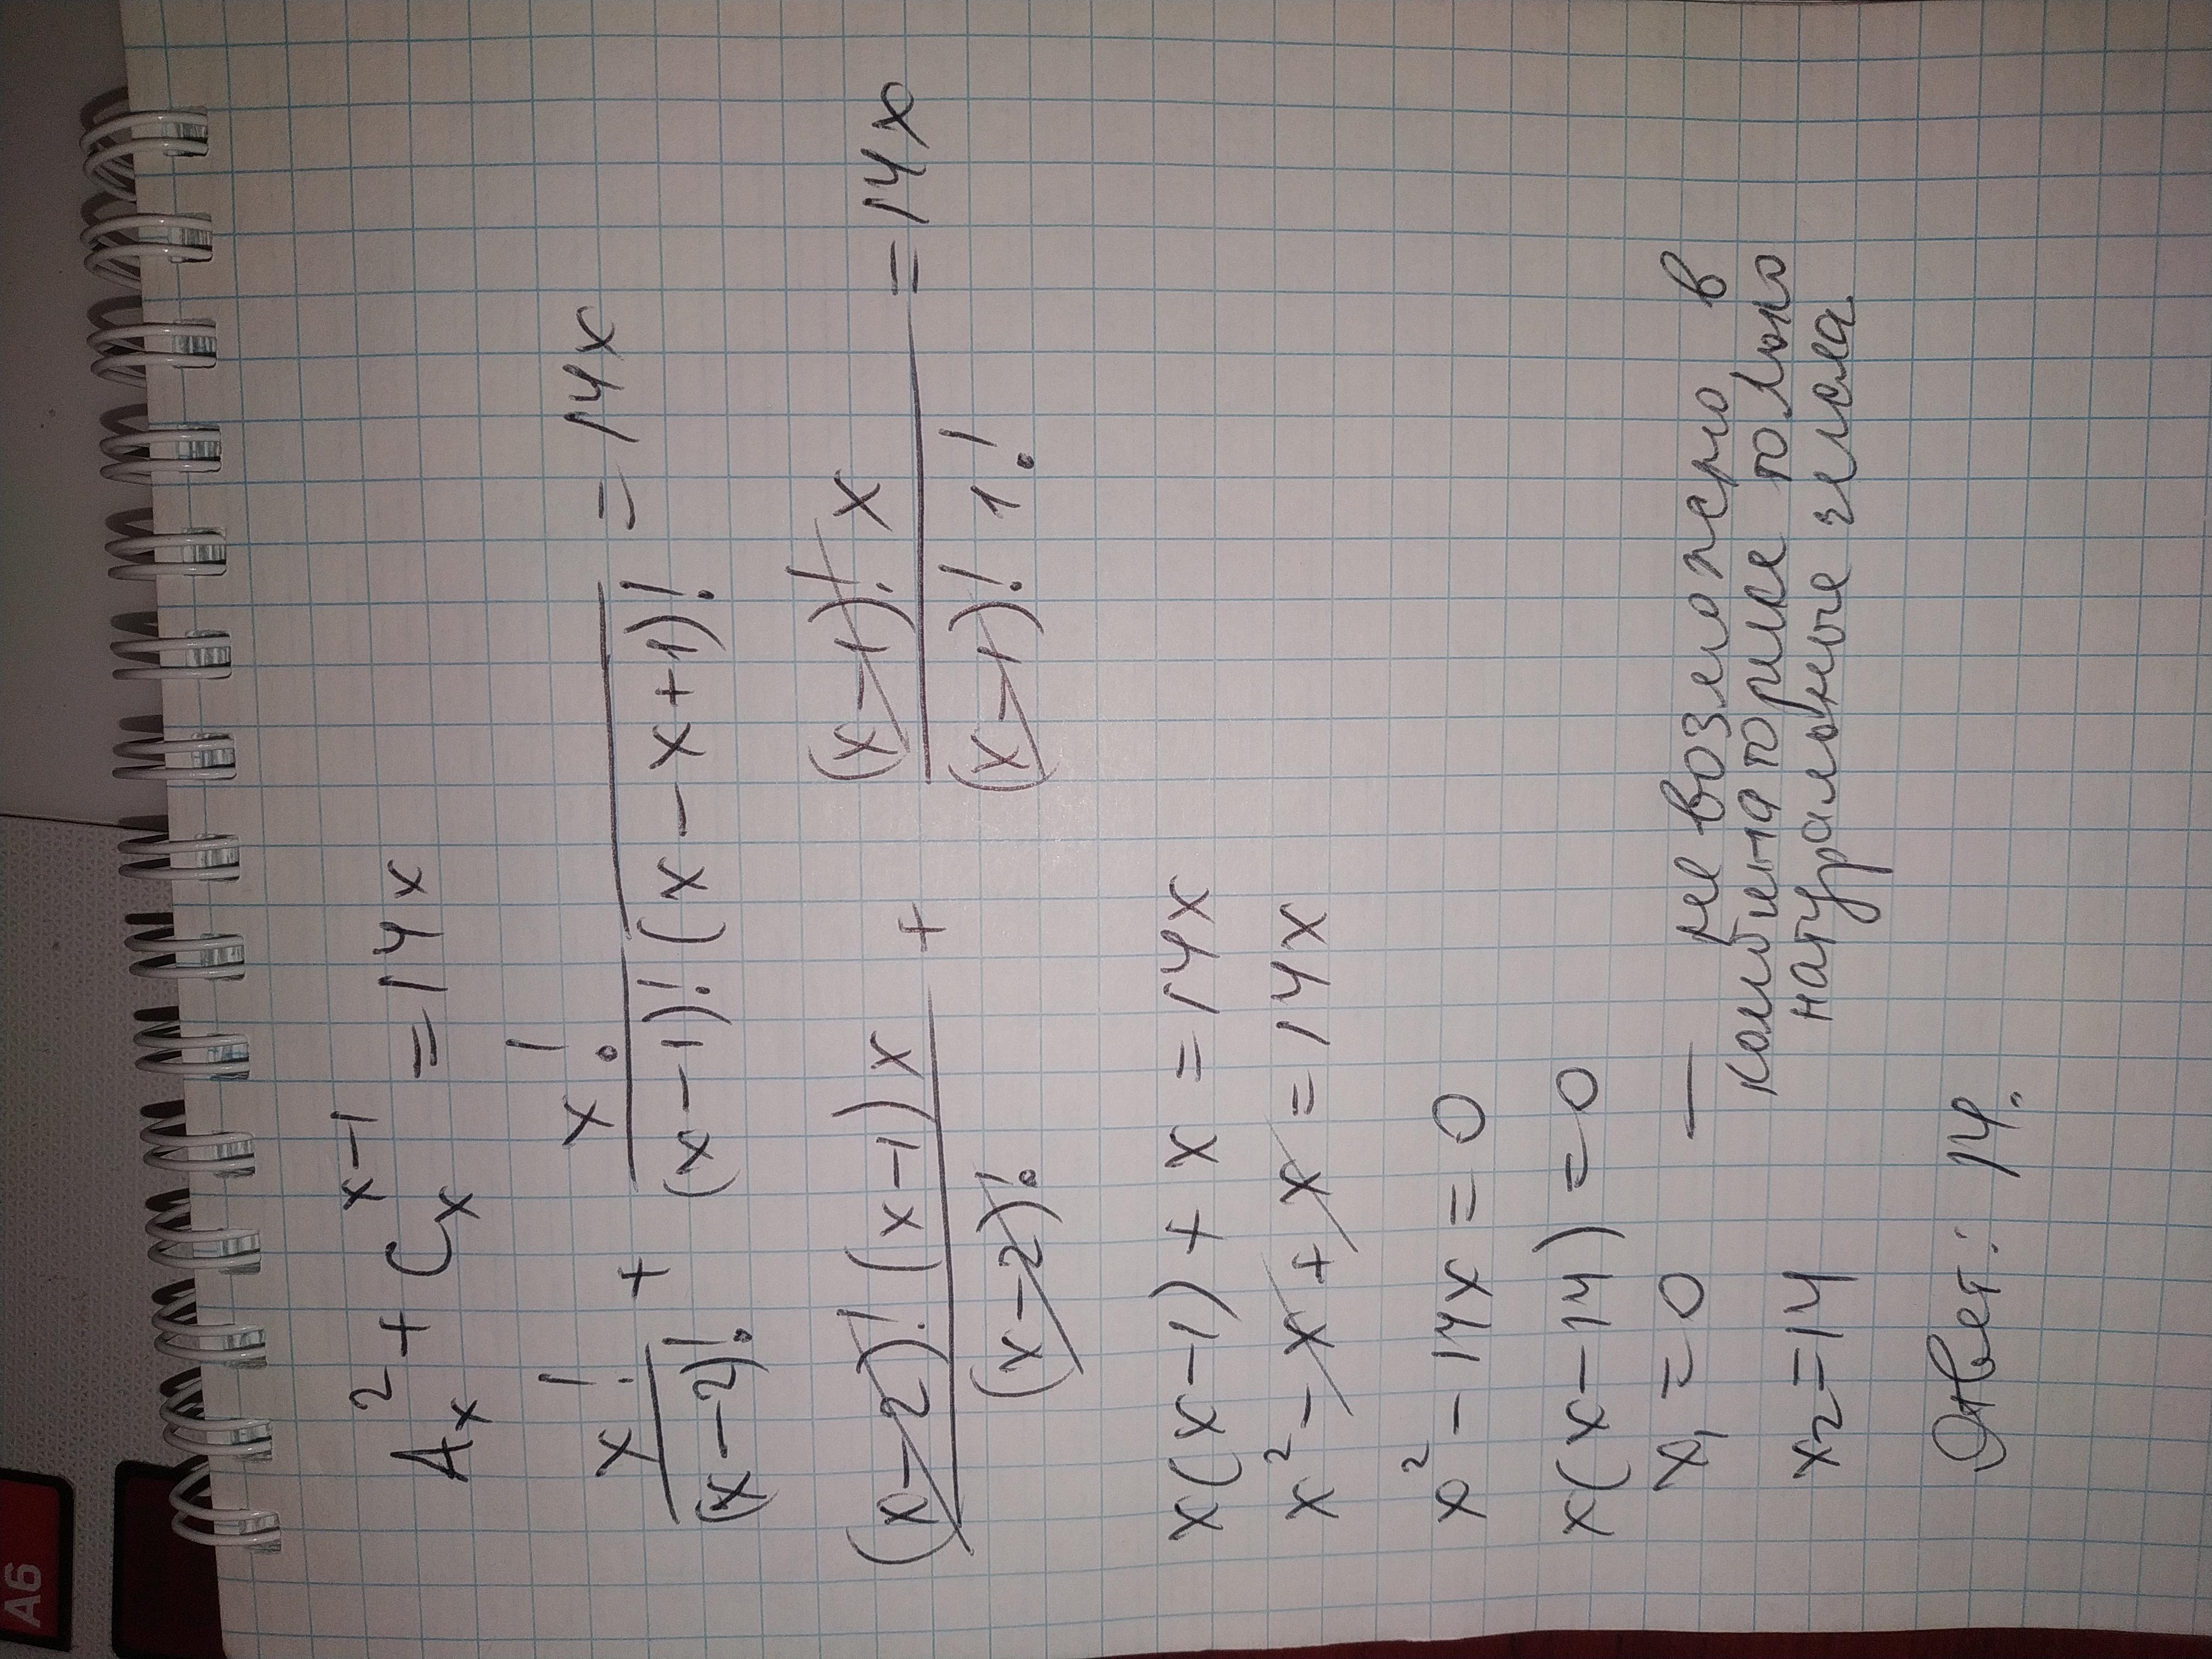 A_x^2 + C_x^{x-1} = 14x
x!/(x-2)! + x!/((x-1)!(x-x+1)!) = 14x
(x-2)!(x-1)x/(x-2)! + (x-1)!x/((x-1)! 1!) = 14x
x(x-1) + x = 14x
x² - x + x = 14x
x² - 14x = 0
x(x-14) = 0
x₁ = 0 — не возможно в
комбинаторике только
натуральные числа
x₂ = 14
Ответ: 14.
A6